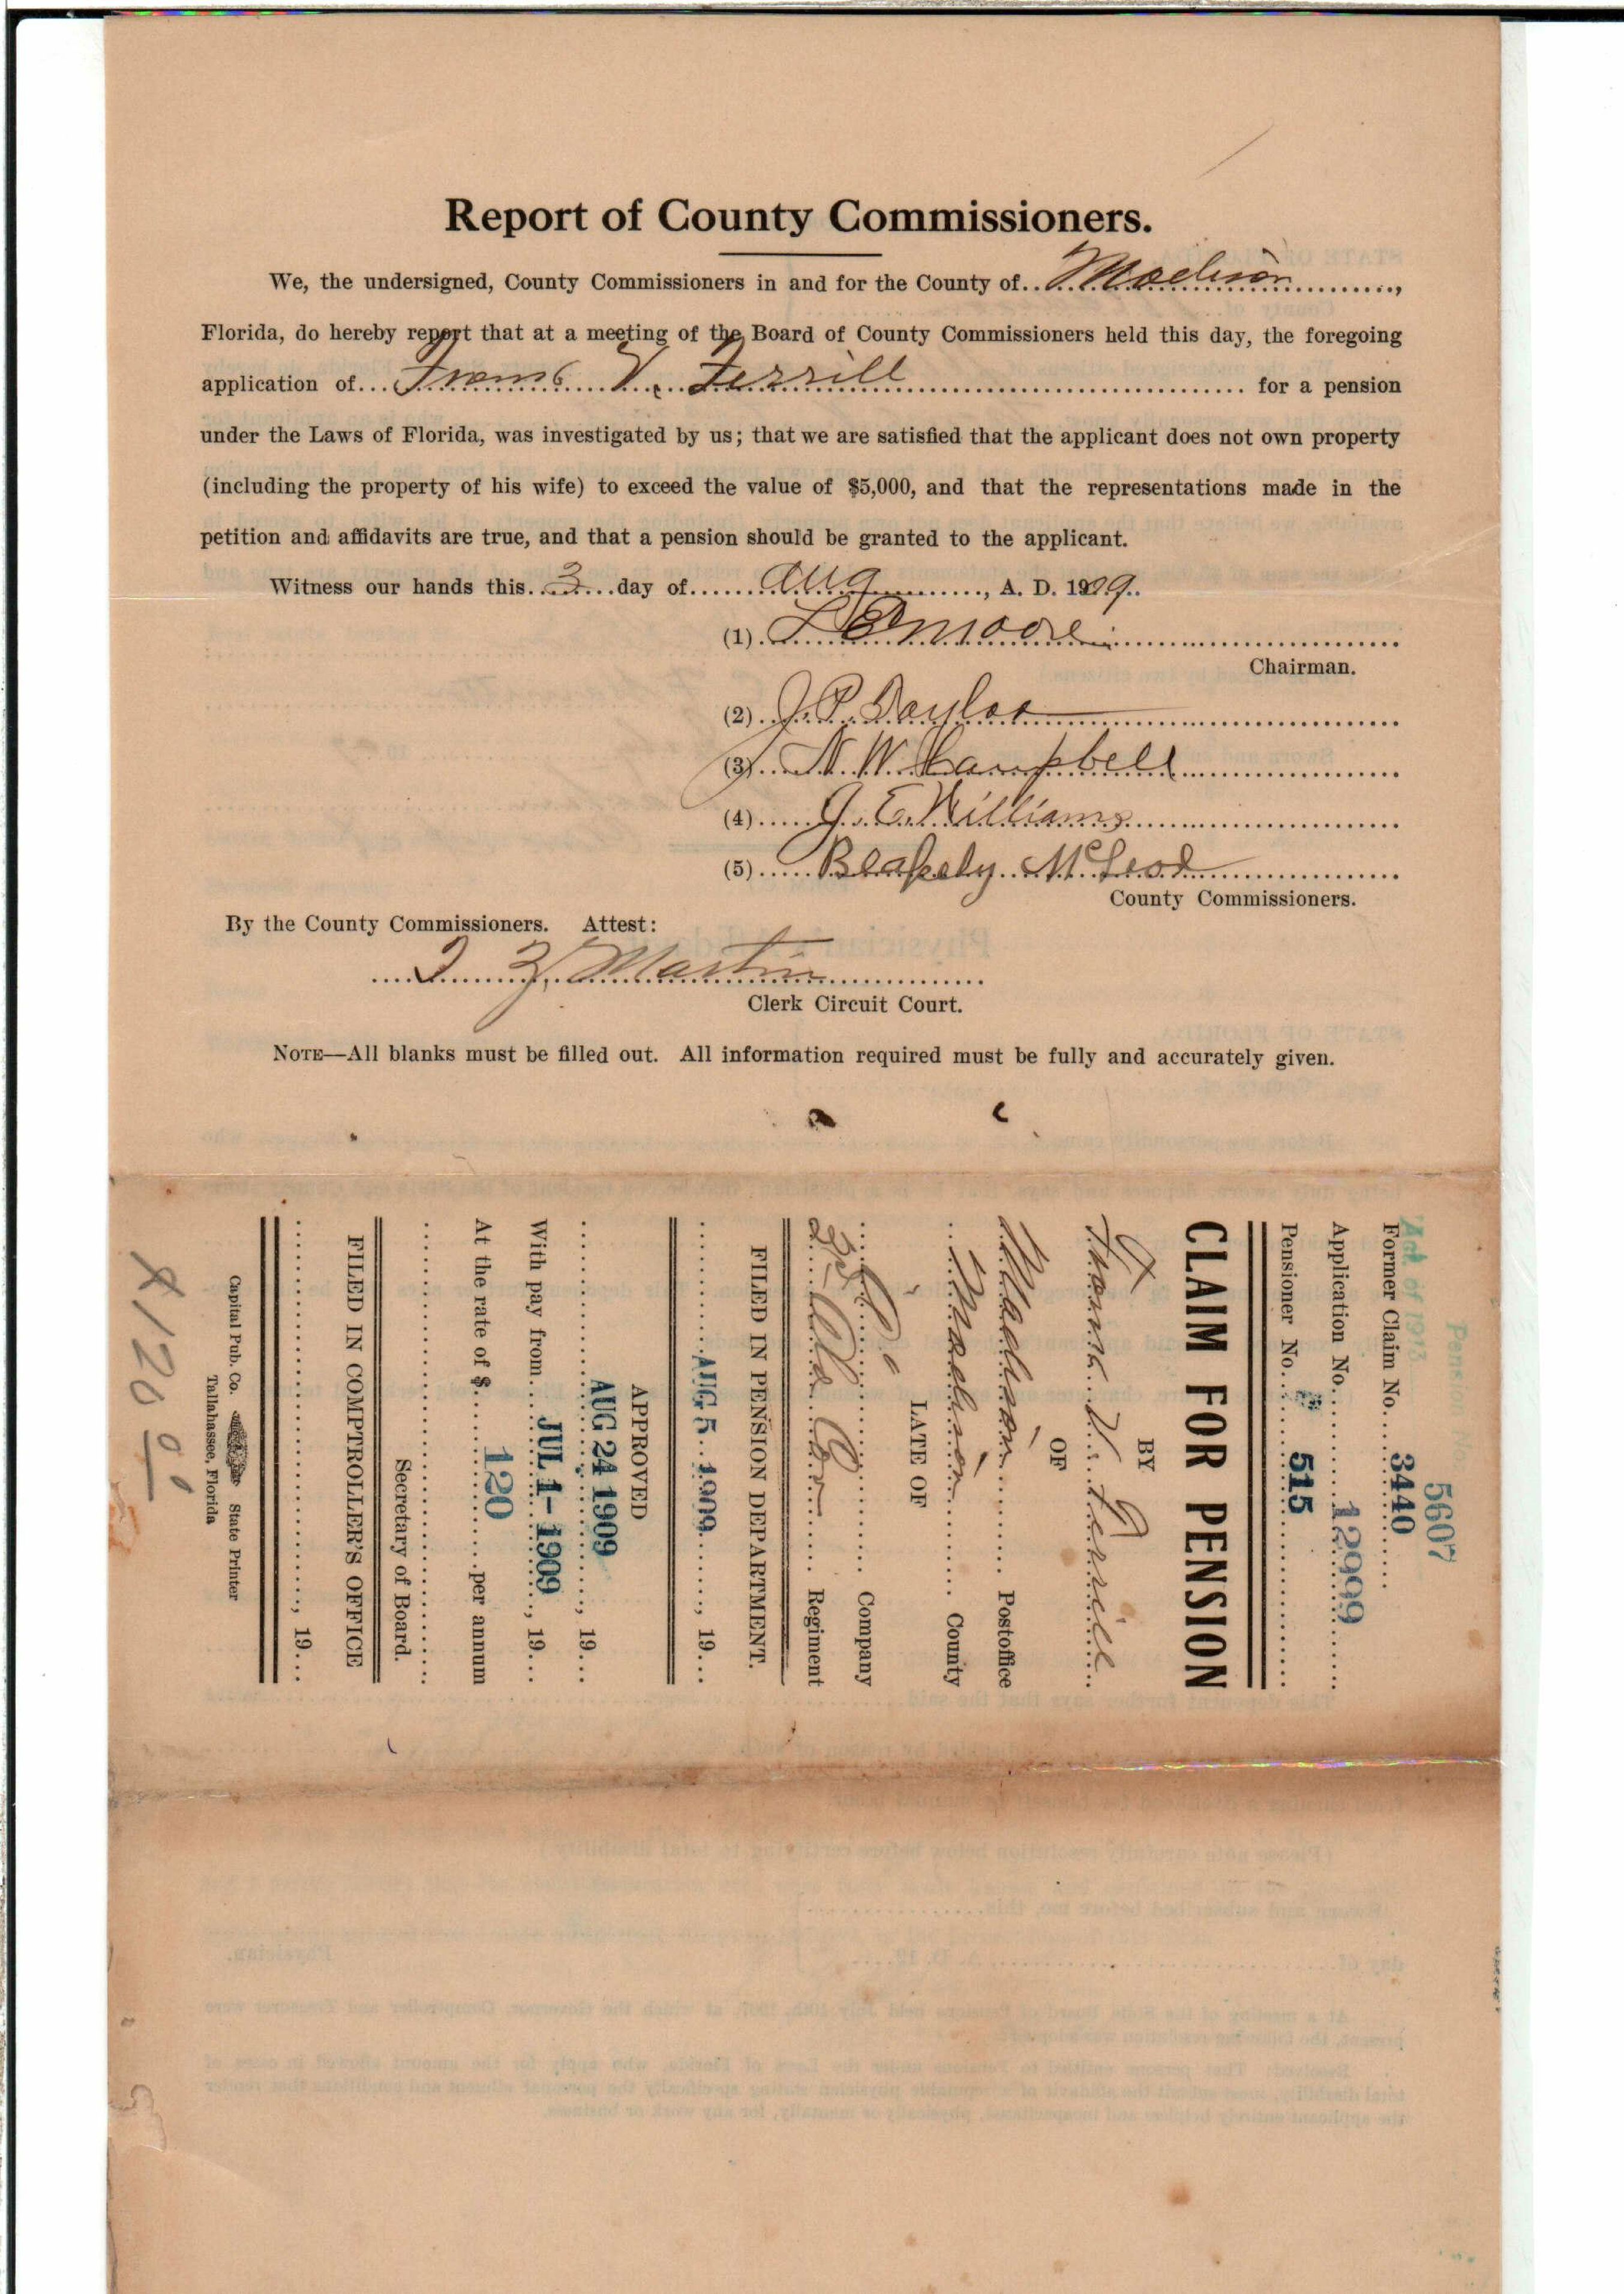 Report of County Commissioners.
We, the undersigned, County Commissioners in and for the County of.. Madison ..........,
Florida, do hereby report that at a meeting of the Board of County Commissioners held this day, the foregoing
application of... V. Ferrill .......... for a pension
under the Laws of Florida, was investigated by us; that we are satisfied that the applicant does not own property
(including the property of his wife) to exceed the value of $5,000, and that the representations made in the
petition and affidavits are true, and that a pension should be granted to the applicant.
Witness our hands this.. 3 ...day of...... Aug ..........., A. D. 1909..
(1). Moore ..........
Chairman.
(2). J. P. Taylor ..........
(3). N. W. Campbell ..........
(4)..... J. E. Williams ..........
(5)..... Blakely McLeod ..........
County Commissioners.
By the County Commissioners. Attest:
Martin ..........
Clerk Circuit Court.
NOTE—All blanks must be filled out. All information required must be fully and accurately given.
Pension No.
5607
Act of 1913
Former Claim No.... 3440 .......
Application No.......... 12999 .......
Pensioner No....... 515 ..........
CLAIM FOR PENSION
BY
V. Ferrill
OF
Madison ....... Postoffice
Madison ....... County
LATE OF
.......... Company
.......... Regiment
FILED IN PENSION DEPARTMENT.
.......... AUG 5 1909 ......., 19...
APPROVED
.......... AUG 24 1909 ......., 19...
With pay from.... JUL 1 - 1909 ..., 19...
At the rate of $...... 120 ....... per annum
..........
Secretary of Board.
FILED IN COMPTROLLER'S OFFICE
.........., 19...
Capital Pub. Co. State Printer
Tallahassee, Florida
$120.00